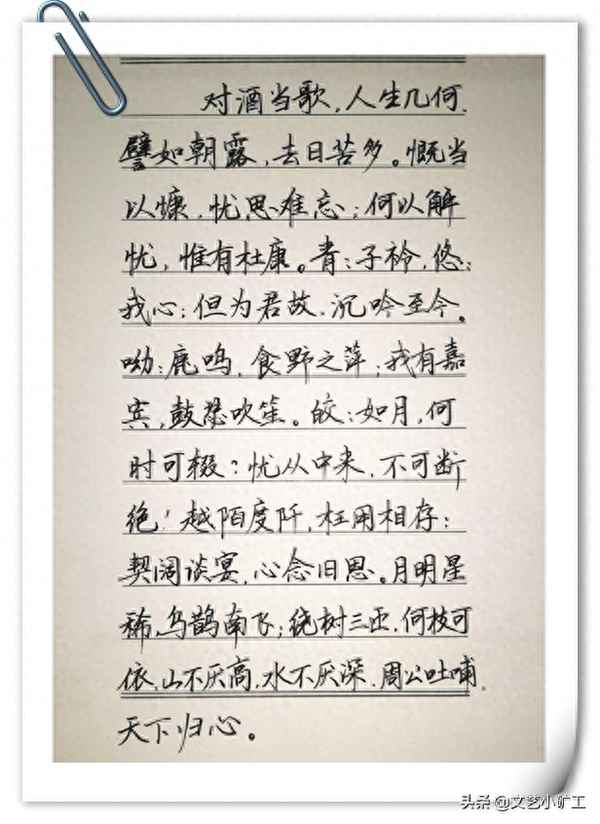 对酒当歌，人生几何，
譬如朝露，去日苦多。慨当
以慷，忧思难忘；何以解
忧，惟有杜康。青：子衿，悠：
我心；但为君故，沉吟至今。
呦：鹿鸣，食野之萍；我有嘉
宾，鼓瑟吹笙。皎：如月，何
时可辍？忧从中来，不可断
绝！越陌度阡，枉用相存；
契阔谈宴，心念旧恩。月明星
稀，乌鹊南飞；绕树三匝，何枝可
依，山不厌高，水不厌深，周公吐哺，
天下归心。
头条 @文艺小矿工